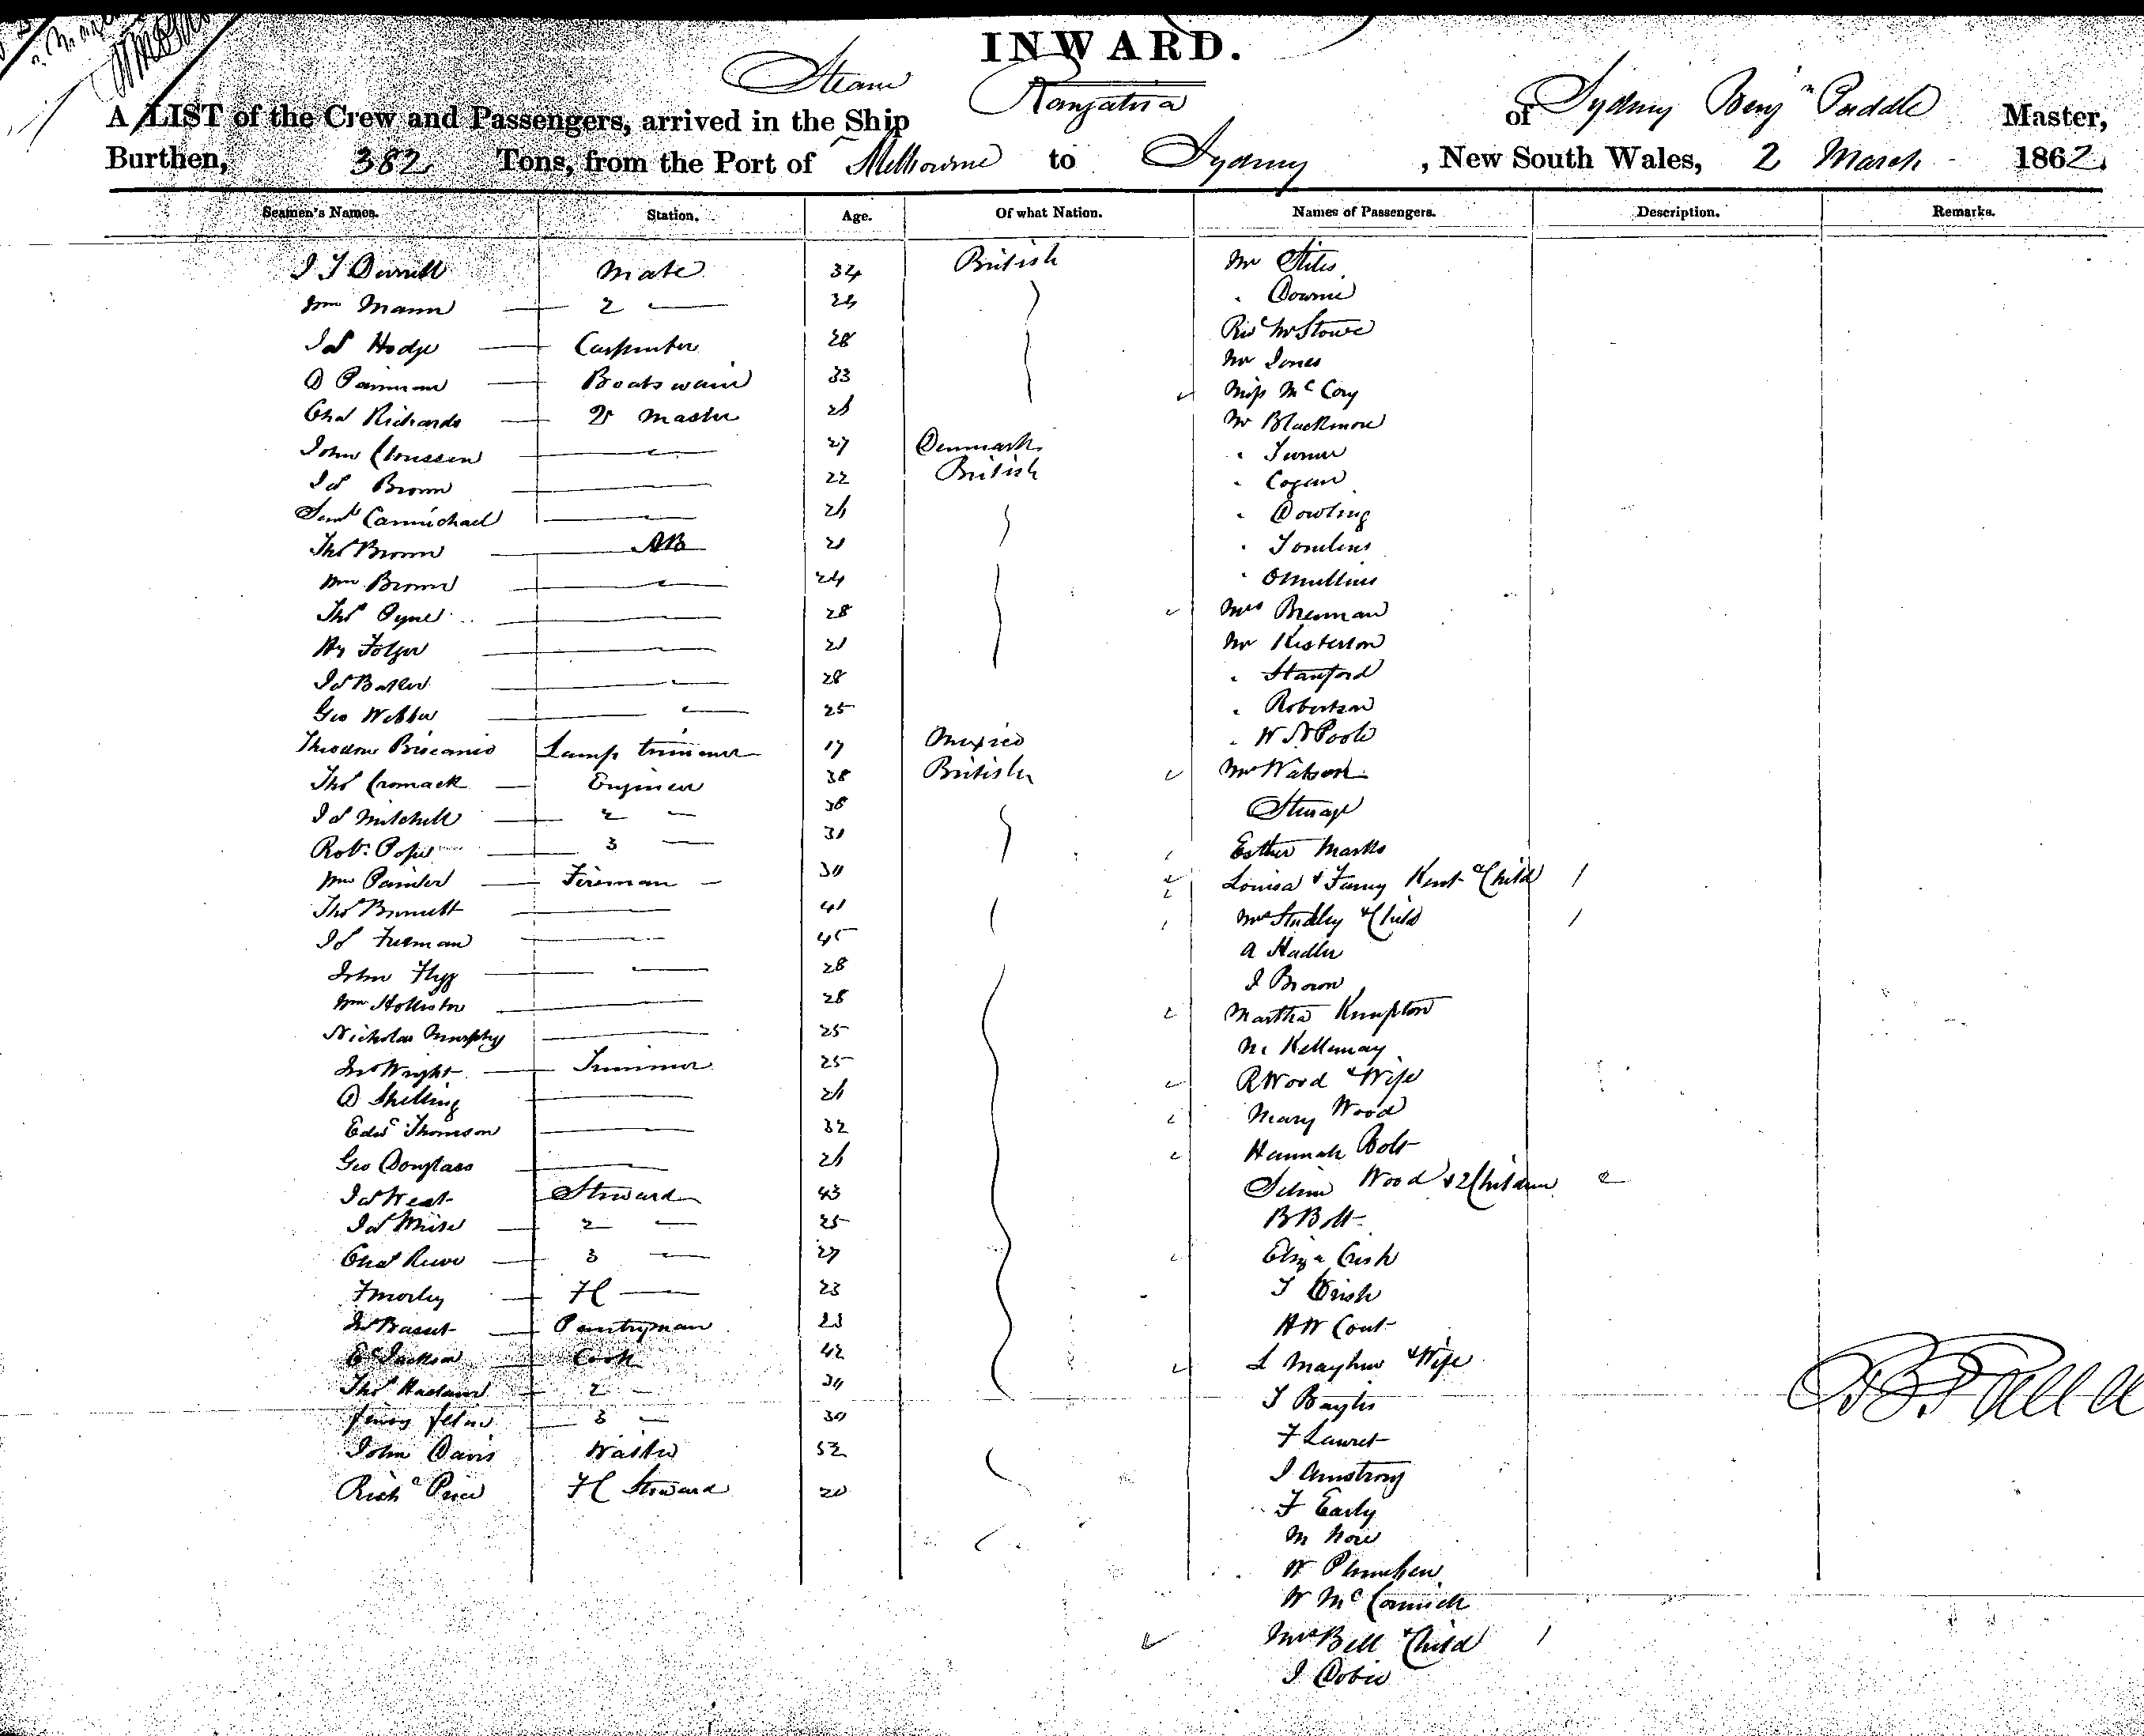 INWARD.
Steam
A LIST of the Crew and Passengers, arrived in the Ship Rangatira of Sydney Benjn Puddle Master,
Burthen, 382 Tons, from the Port of Melbourne to Sydney , New South Wales, 2 March 1862.
Seamen's Names. Station. Age. Of what Nation. Names of Passengers. Description. Remarks.
Mate 34 British Mr Stiles
Wm Mann 2 " 24 " Downie
Jas Hodge Carpenter 28 Revd Mr Stowe
D Painman Boatswain 33 Mr Jones
Chas Richards Qr Master 26 Miss McCory
John Choussen " 27 Denmark Mr Blackmore
Jas Brown 22 British " Turner
Saml Carmichael " 26 " Cogan
Thos Brown AB 21 " Dowling
Wm Brown " 24 " Tomlins
Thos Pyne 28 " OMullins
Hy Folger 21 Mrs Brennan
Jas Butler " 28 Mr Kesterton
Geo Webber " 25 " Stanford
Theodore Briscanio Lamp trimmer 17 Mexico " Robertson
Thos Cromack Engineer 38 British " W N Poole
Jas Mitchell 2 " 38 Mrs Watson
Robt Pope 3 " 31 Steerage
Wm Painter Fireman 30 Esther Marks
Thos Burnett 41 Louisa & Fanny Kent & Child 1
Jas Freeman " 45 Mrs Studley & Child 1
John Flygg " 28 A Hadler
Wm Hollister 28 J Brown
Nicholas Murphy 25 Martha Kempton
Jno Wright Trimmer 25 M Kellemay
D Shilling 26 R Wood & Wife
Edwd Thomson 32 Mary Wood
Geo Douglass 26 Hannah Bolt
Jas West Steward 43 Wood & 2 Children 2
Jas White 2 " 25 B Bolt
Chas Reeve 3 " 27 Eliza Crish
F Morley FC " 23 T Crish
Jno Basset Pantryman 23 H W Cout
Ed Jackson Cook 42 L Mayhew & Wife
Thos 2 " 34 T Baylis
3 " 30 F Lauret
John Davis Waiter 52 J Armstrong
Richd Price FC Steward 20 F Early
W
W McCormick
Mrs Bell & Child 1
J Dobie